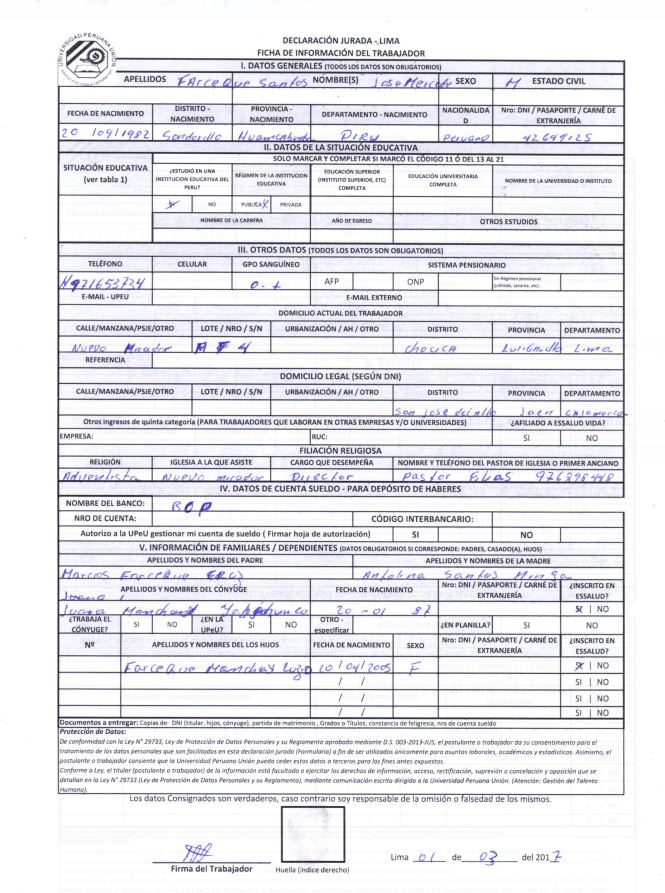 UNIVERSIDAD PERUANA UNIÓN
DECLARACIÓN JURADA - LIMA
FICHA DE INFORMACIÓN DEL TRABAJADOR
I. DATOS GENERALES (TODOS LOS DATOS SON OBLIGATORIOS)
APELLIDOS Farceque Santos NOMBRE(S) Jose Mercede SEXO M ESTADO CIVIL
FECHA DE NACIMIENTO DISTRITO - NACIMIENTO PROVINCIA - NACIMIENTO DEPARTAMENTO - NACIMIENTO NACIONALIDAD Nro: DNI / PASAPORTE / CARNÉ DE EXTRANJERÍA
20 /09/1982 Sondorillo Peruano
II. DATOS DE LA SITUACIÓN EDUCATIVA
SITUACIÓN EDUCATIVA (ver tabla 1) SOLO MARCAR Y COMPLETAR SI MARCÓ EL CÓDIGO 11 Ó DEL 13 AL 21
¿ESTUDIÓ EN UNA INSTITUCION EDUCATIVA DEL PERU? RÉGIMEN DE LA INSTITUCION EDUCATIVA EDUCACIÓN SUPERIOR (INSTITUTO SUPERIOR, ETC) COMPLETA EDUCACIÓN UNIVERSITARIA COMPLETA NOMBRE DE LA UNIVERSIDAD O INSTITUTO
X NO PUBLICA X PRIVADA
NOMBRE DE LA CARRERA AÑO DE EGRESO OTROS ESTUDIOS
III. OTROS DATOS (TODOS LOS DATOS SON OBLIGATORIOS)
TELÉFONO CELULAR GPO SANGUÍNEO SISTEMA PENSIONARIO
921653734 O + AFP ONP Sin Régimen previsional (jubilado, cesante, etc).
E-MAIL - UPEU E-MAIL EXTERNO
DOMICILIO ACTUAL DEL TRABAJADOR
CALLE/MANZANA/PSJE/OTRO LOTE / NRO / S/N URBANIZACIÓN / AH / OTRO DISTRITO PROVINCIA DEPARTAMENTO
Nuevo Mirador Lima
REFERENCIA
DOMICILIO LEGAL (SEGÚN DNI)
CALLE/MANZANA/PSJE/OTRO LOTE / NRO / S/N URBANIZACIÓN / AH / OTRO DISTRITO PROVINCIA DEPARTAMENTO
San Jose del Alto Jaen
Otros ingresos de quinta categoría (PARA TRABAJADORES QUE LABORAN EN OTRAS EMPRESAS Y/O UNIVERSIDADES) ¿AFILIADO A ESSALUD VIDA?
EMPRESA: RUC: SI NO
FILIACIÓN RELIGIOSA
RELIGIÓN IGLESIA A LA QUE ASISTE CARGO QUE DESEMPEÑA NOMBRE Y TELÉFONO DEL PASTOR DE IGLESIA O PRIMER ANCIANO
Adventista Nuevo mirador Director Pastor Elias 976298448
IV. DATOS DE CUENTA SUELDO - PARA DEPÓSITO DE HABERES
NOMBRE DEL BANCO:
NRO DE CUENTA: CÓDIGO INTERBANCARIO:
Autorizo a la UPeU gestionar mi cuenta de sueldo ( Firmar hoja de autorización) SI NO
V. INFORMACIÓN DE FAMILIARES / DEPENDIENTES (DATOS OBLIGATORIOS SI CORRESPONDE: PADRES, CASADO(A), HIJOS)
APELLIDOS Y NOMBRES DEL PADRE APELLIDOS Y NOMBRES DE LA MADRE
Marcos Farceque Cruz Santos Minga
APELLIDOS Y NOMBRES DEL CÓNYUGE FECHA DE NACIMIENTO Nro: DNI / PASAPORTE / CARNÉ DE EXTRANJERÍA ¿INSCRITO EN ESSALUD?
Juana
Juana 20 - 01 87 SI | NO
¿TRABAJA EL CÓNYUGE? SI NO ¿EN LA UPeU? SI NO OTRO - especificar ¿EN PLANILLA? SI NO
Nº APELLIDOS Y NOMBRES DE LOS HIJOS FECHA DE NACIMIENTO SEXO Nro: DNI / PASAPORTE / CARNÉ DE EXTRANJERÍA ¿INSCRITO EN ESSALUD?
Farceque Manchay 20/04/2005 F SI | NO
/ / SI | NO
/ / SI | NO
/ / SI | NO
Documentos a entregar: Copias de: DNI (titular, hijos, cónyuge), partida de matrimonio , Grados o Títulos, constancia de feligresia, nro de cuenta sueldo
Protección de Datos:
De conformidad con la Ley N° 29733, Ley de Protección de Datos Personales y su Reglamento aprobado mediante D.S. 003-2013-JUS, el postulante o trabajador da su consentimiento para el
tratamiento de los datos personales que son facilitados en esta declaración jurada (Formulario) a fin de ser utilizados únicamente para asuntos laborales, académicos y estadísticos. Asimismo, el
postulante o trabajador consiente que la Universidad Peruana Unión pueda ceder estos datos a terceros para los fines antes expuestos.
Conforme a Ley, el titular (postulante o trabajador) de la información está facultado a ejercitar los derechos de información, acceso, rectificación, supresión o cancelación y oposición que se
detallan en la Ley N° 29733 (Ley de Protección de Datos Personales y su Reglamento), mediante comunicación escrita dirigida a la Universidad Peruana Unión. (Atención: Gestión del Talento
Humano).
Los datos Consignados son verdaderos, caso contrario soy responsable de la omisión o falsedad de los mismos.
Firma del Trabajador Huella (índice derecho) Lima 01 de 03 del 2017